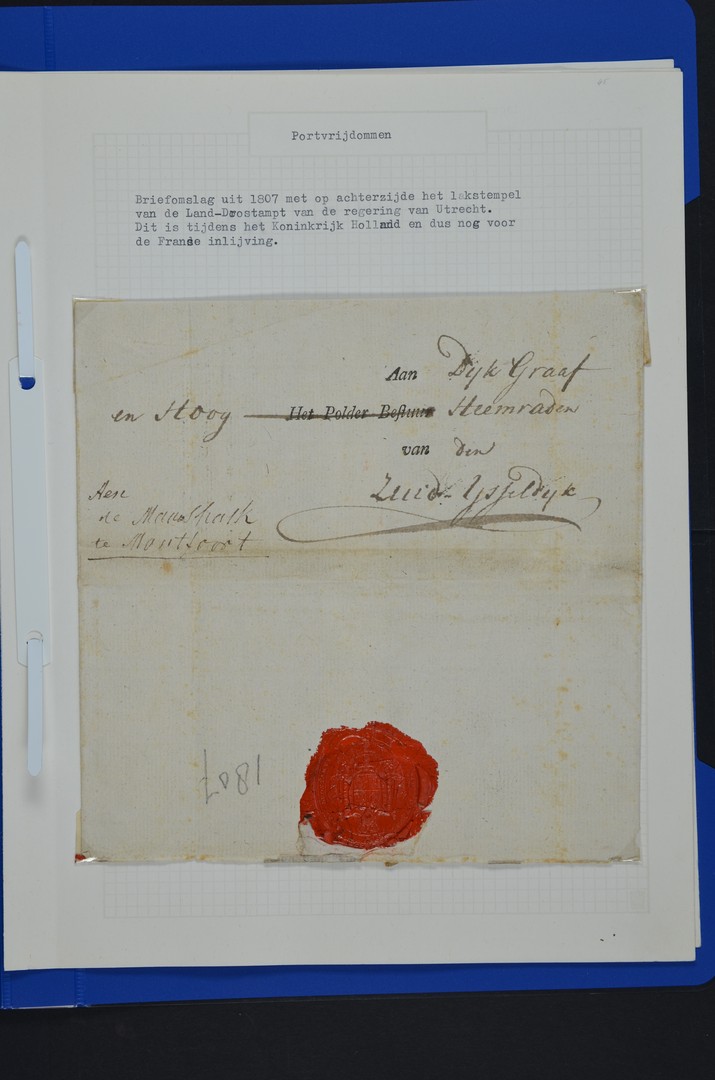 Portvrijdommen
Briefomslag uit 1807 met op achterzijde het lakstempel
van de Land-Drostampt van de regering van Utrecht.
Dit is tijdens het Koninkrijk Holland en dus nog voor
de Franse inlijving.
Aan Dijk Graaf
en Hoog Het Polder Bestuur Heemraden
van den
Zuid-Ysseldyk
Aen
de
te Montfoort
1807